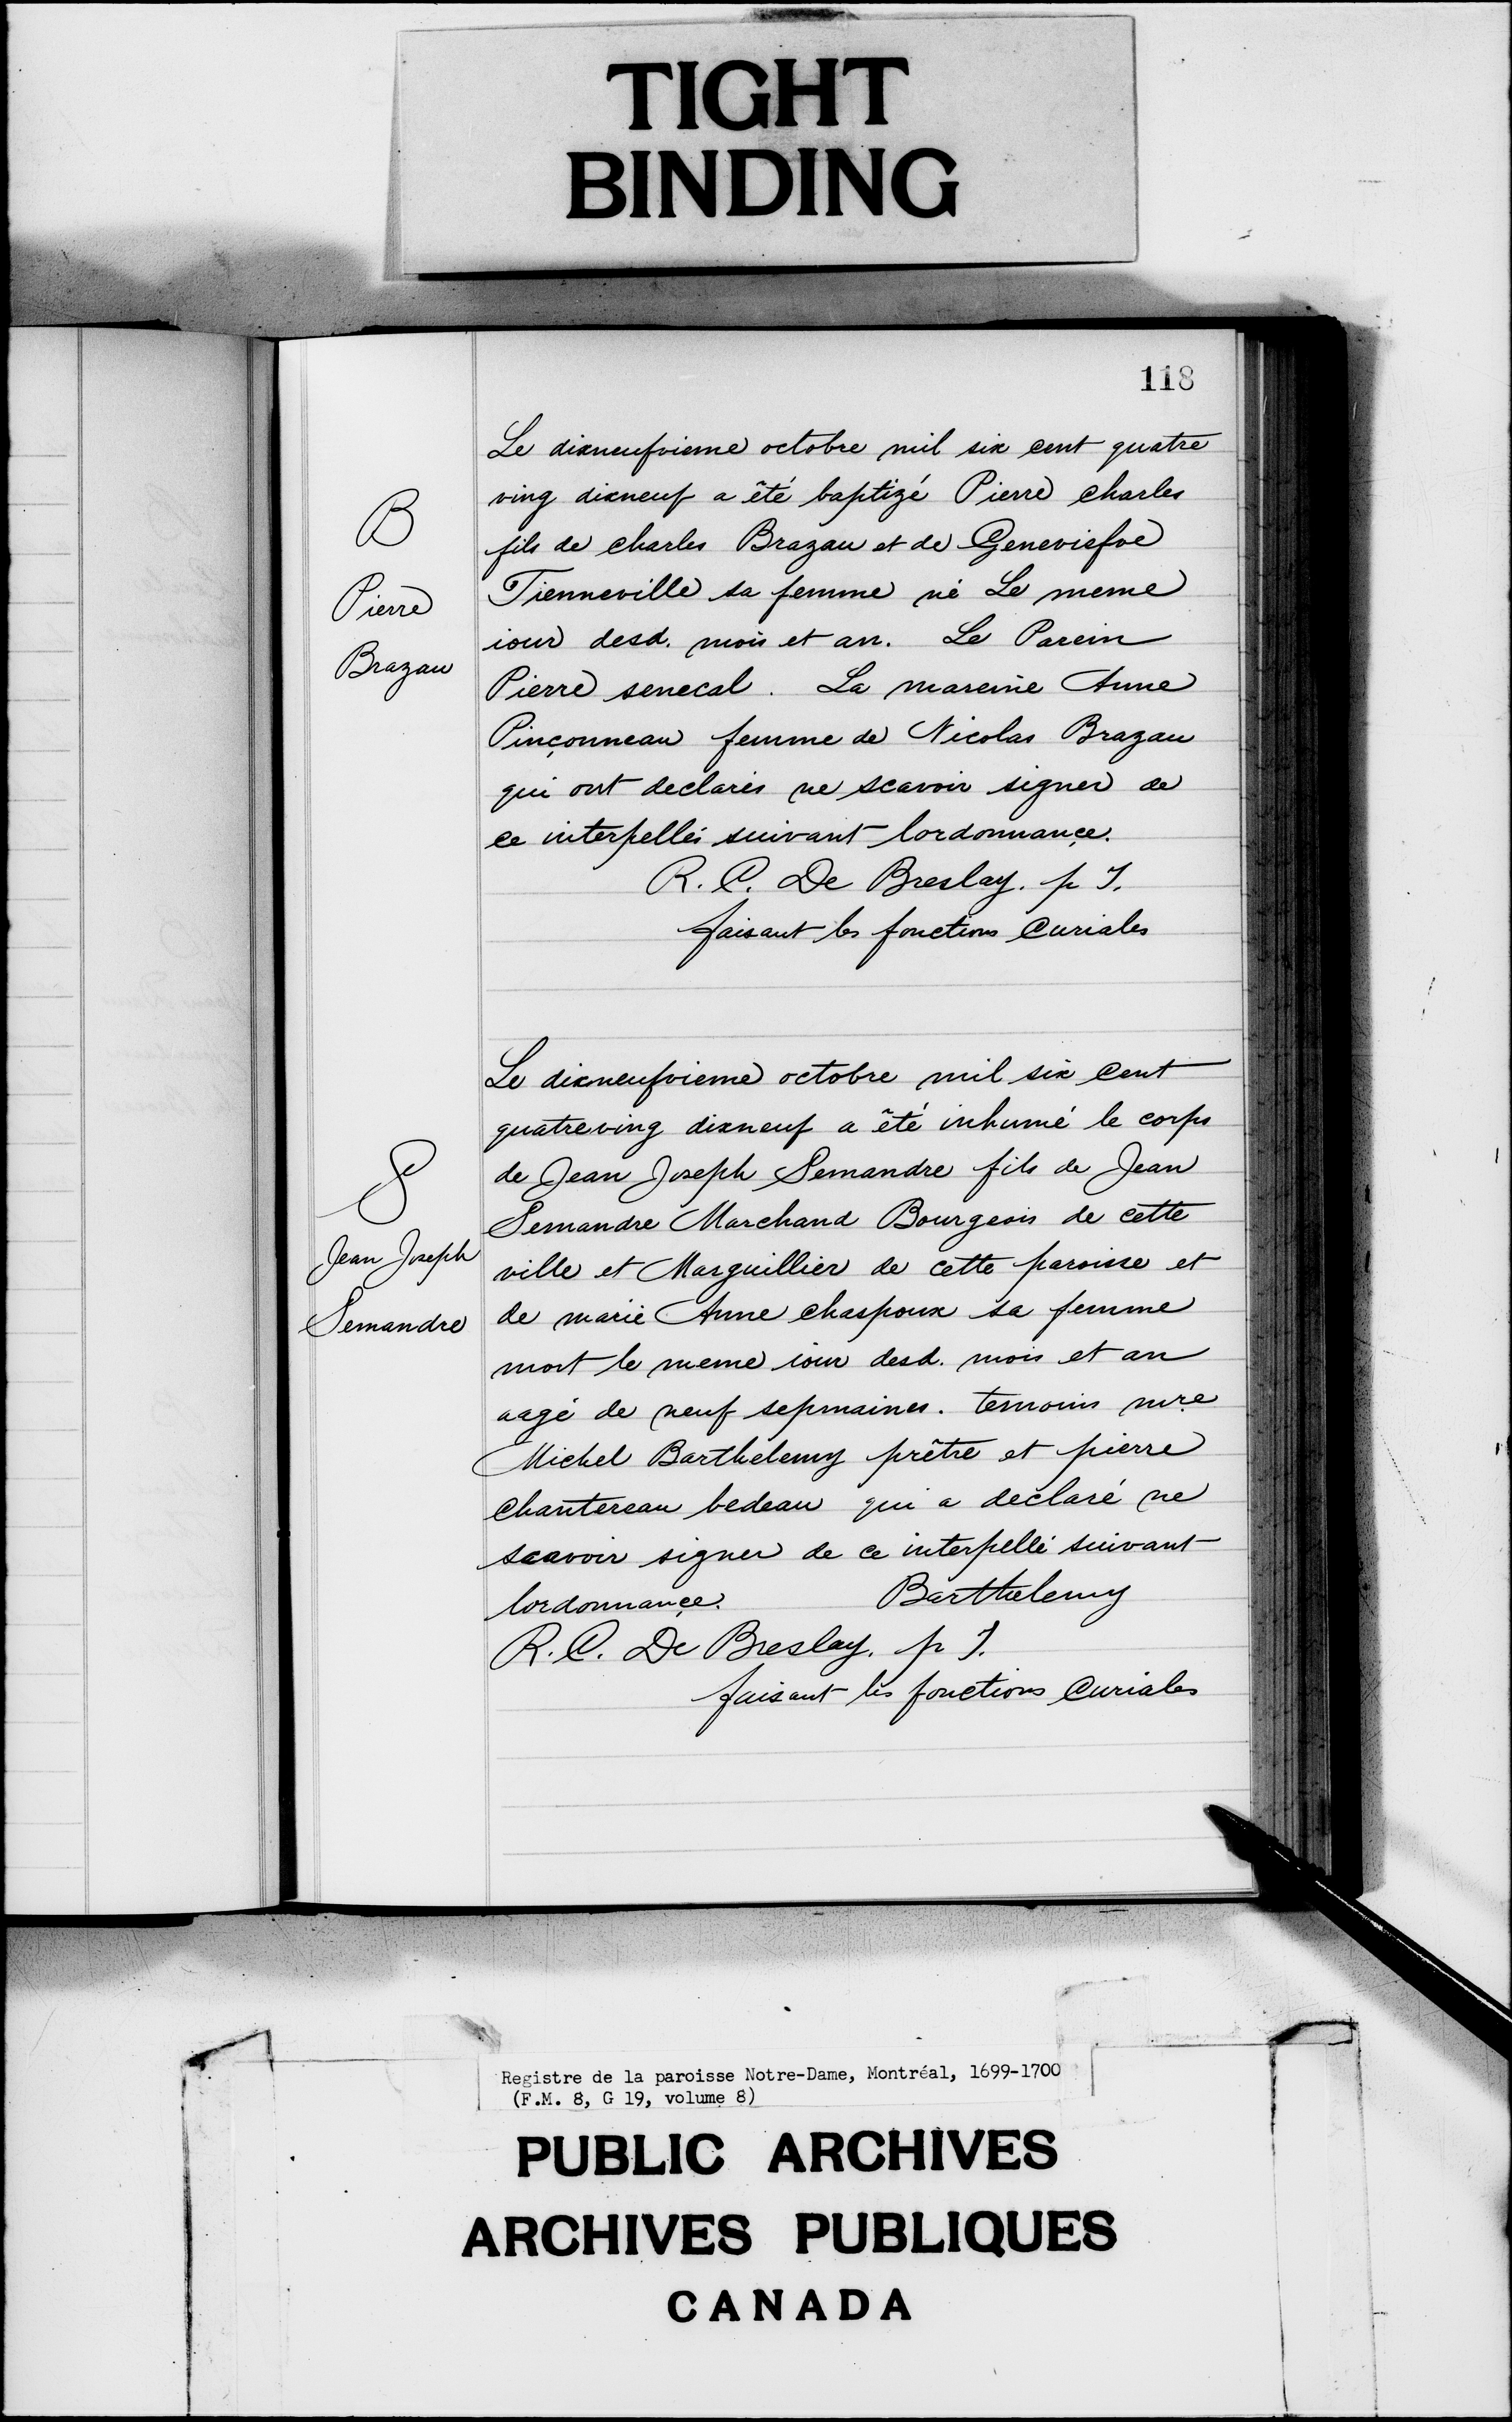 TIGHT
BINDING
118
Le dixneufvieme octobre mil six cent quatre
ving dixneuf a êté baptizé Pierre charles
fils de charles Brazau et de Geneviefve
Tienneville sa femme né Le meme
iour desd. mois et an. Le Parein
Pierre senecal. La mareine Anne
Pinçonneau femme de Nicolas Brazau
qui ont declarés ne scavoir signer de
ce interpellés suivant lordonnançe.
R. C. De Breslay. p J.
faisant les fonctions Curiales
B
Pierre
Brazau
Le dixneufvieme octobre mil six Cent
quatreving dixneuf a êté inhumé le corps
de Jean Joseph Semandre fils de Jean
Semandre Marchand Bourgeois de cette
ville et Marguillier de cette paroisse et
de marie Anne chaspoux sa femme
mort le meme iour desd. mois et an
aagé de neuf sepmaines. temoins mre
Michel Barthelemy prêtre et pierre
chantereau bedeau qui a declaré ne
scavoir signer de ce interpellé suivant
lordonnançe. Barthelemy
R. C. De Breslay. p J.
faisant les fonctions Curiales
S
Jean Joseph
Semandre
Registre de la paroisse Notre-Dame, Montréal, 1699-1700
(F.M. 8, G 19, volume 8)
PUBLIC ARCHIVES
ARCHIVES PUBLIQUES
CANADA